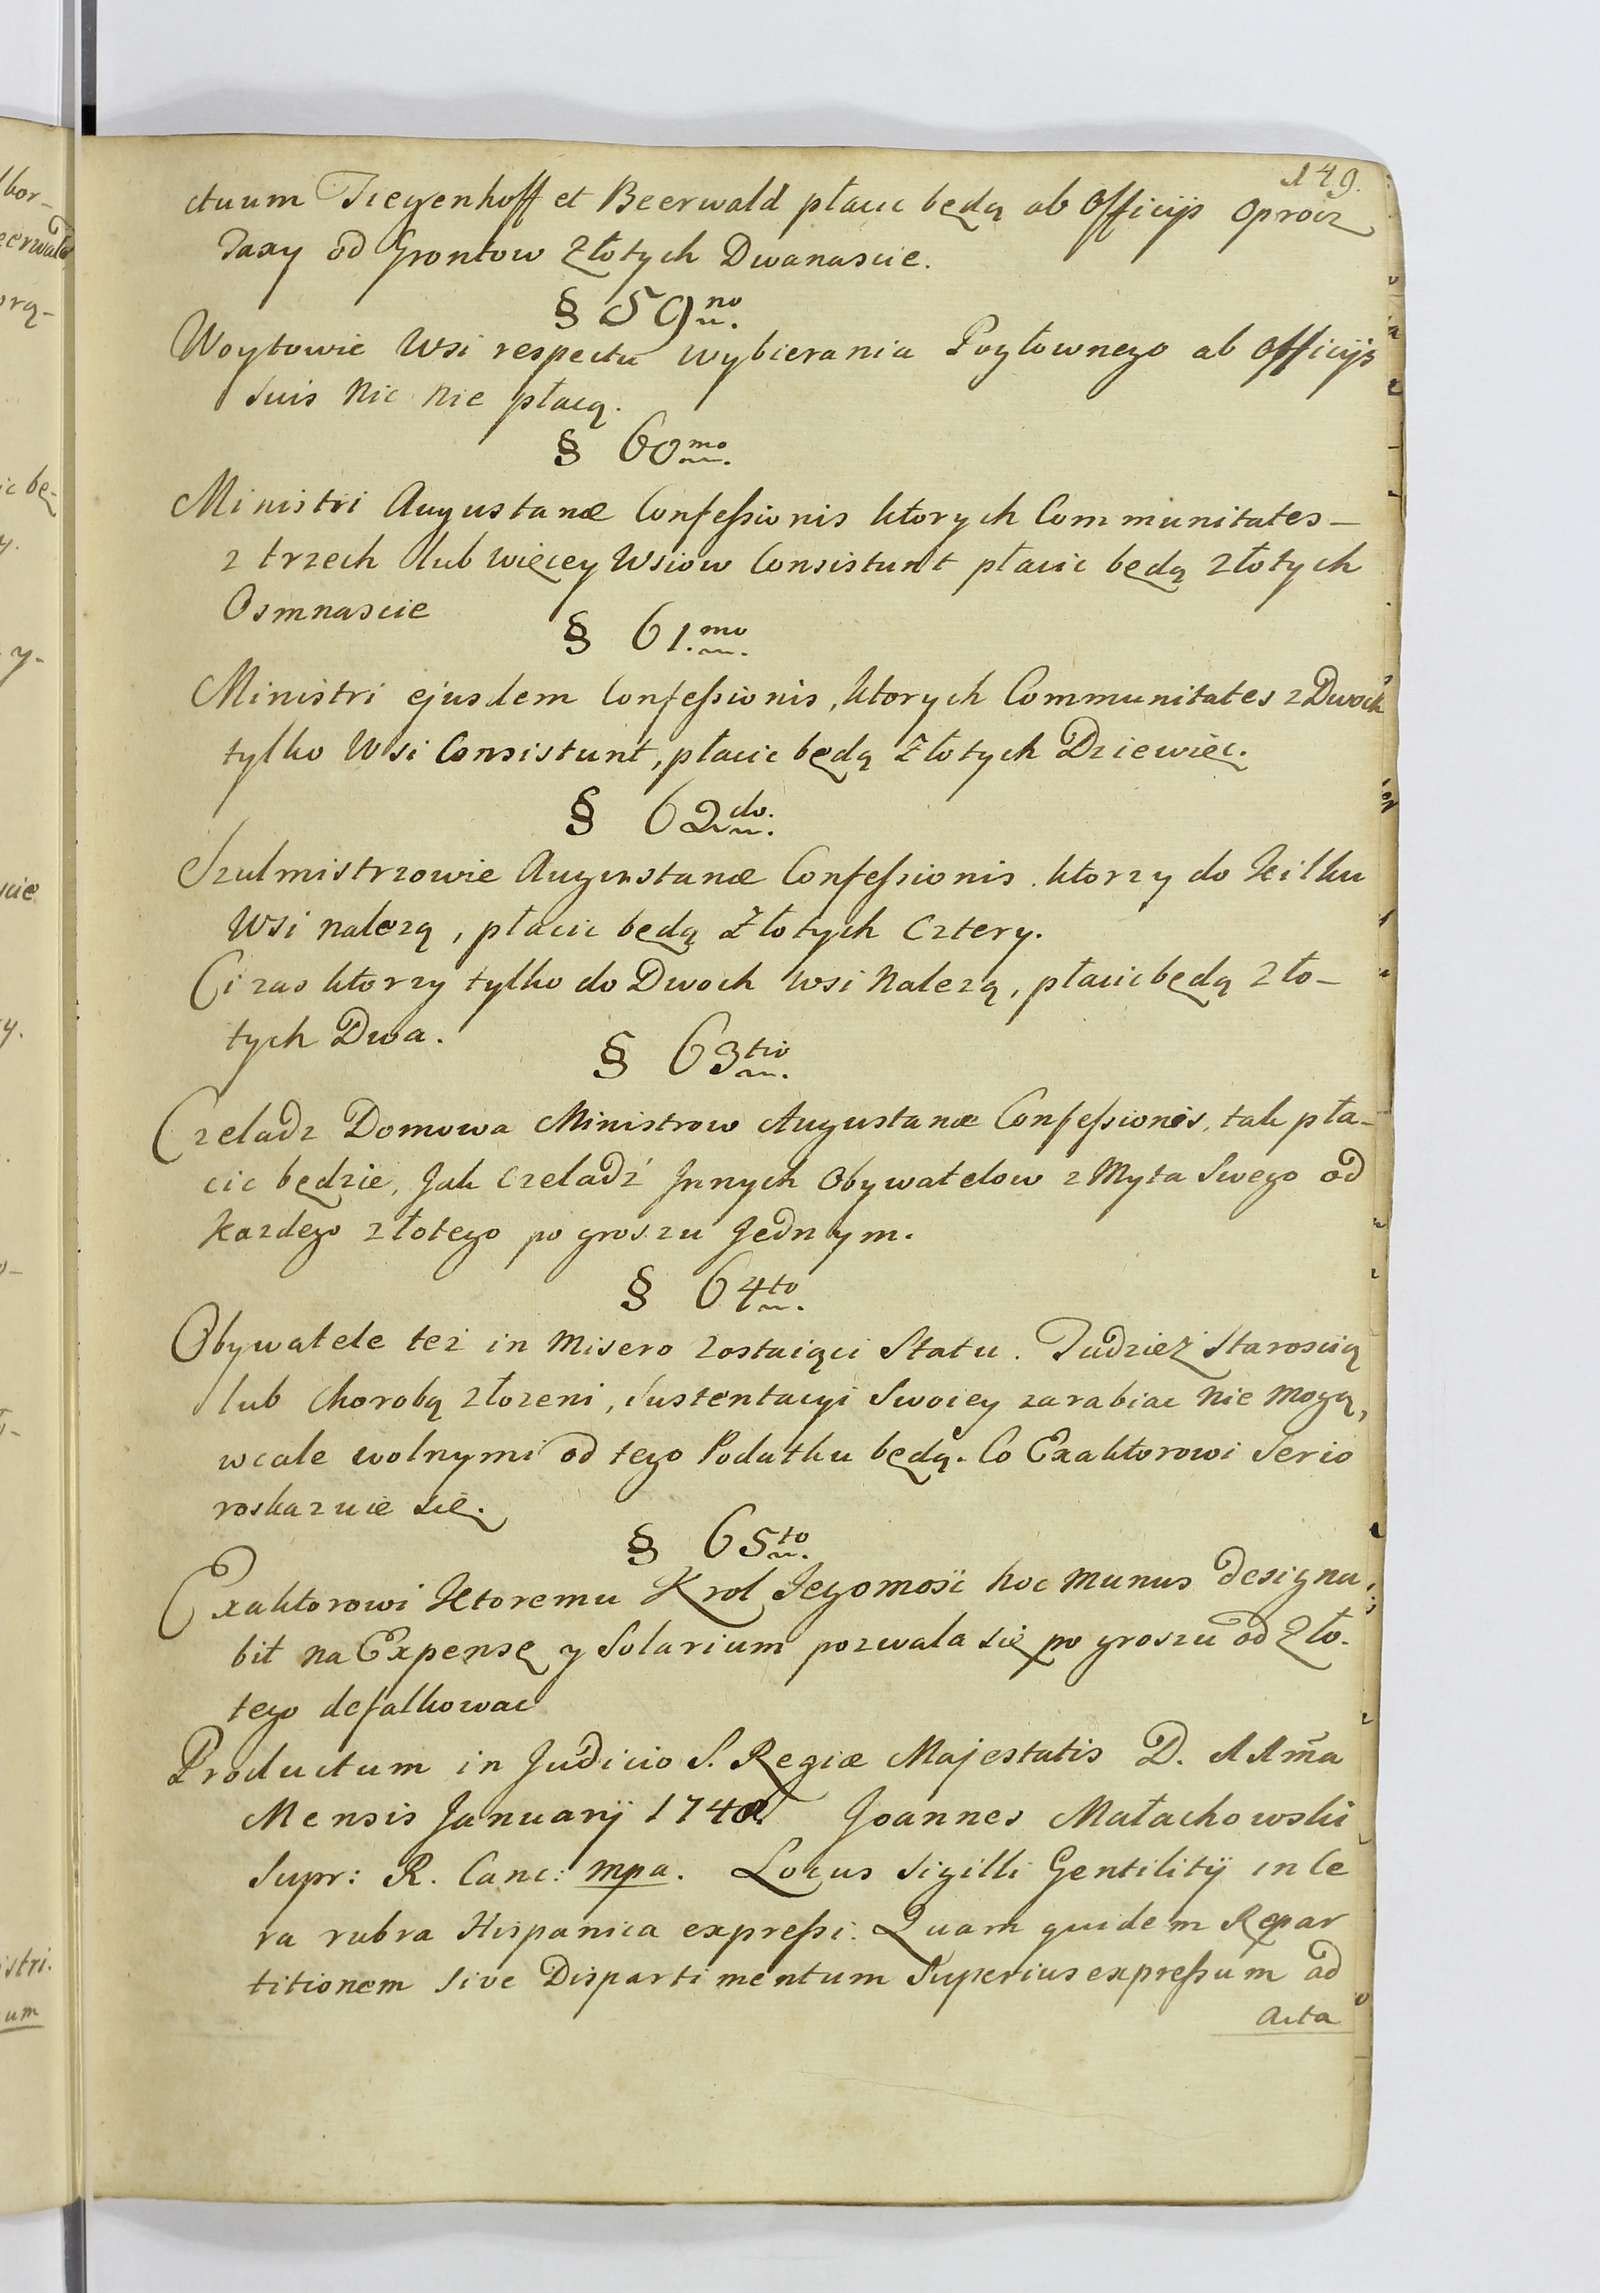 149.
ctuum Tiegenhoff et Beerwald płacic będą ab Officijs oprocz
Taxy od Grontow Złotych Dwanascie.
§ 59no.
Woytowie Wsi respectu wybierania Pogłownego ab Officijs
Suis Nic nie płacą.
§ 60mo.
Ministri Augustanæ Confessionis ktorych Communitates –
z trzech lub więcey Wsiow Consistunt płacic będą złotych
Osmnascie
§ 61.mo.
Ministri ejusdem Confessionis, ktorych Communitates z Dwoch
tylko Wsi Consistunt, płacic będą Złotych Dziewięc.
§ 62do.
Szulmistrzowie Augustanæ Confessionis. ktorzy do Kilku
Wsi nalezą, płacic będą Złotych Cztery.
Ci zas ktorzy tylko do Dwoch wsi Nalezą, płacic będą zło–
tych Dwa.
§ 63tio.
Czeladz Domowa Ministrow Augustanæ Confessionis, tak pła–
cic będzie, Jak Czeladź Jnnych Obywatelow z Myta Swego od
Kazdego złotego po groszu Jednym.
§ 64to.
Obywatele też in Misero zostaiący Statu. Tudzież Staroscią
lub Chorobą złozeni, Sustentacyi Swoiey zarabiac nie mogą,
wcale wolnymi od tego Podatku będą. Co Exaktorowi Serio
roskazuie się.
§ 65to.
Exaktorowi Ktoremu Krol Jegomość hoc munus designa
bit na Expensę y Solarium pozwala się po groszu od Zło.
tego defalkowac
Productum in Judicio S. Regiæ Majestatis D. 11ma
Mensis Januarij 174 Joannes Małachowski
Supr: R. Canc: mpa. Locus Sigilli Gentilitij in Ce
ra rubra Hispanica expressi. Quam quidem Repar
titionem sive Dispartimentum Superius expressum ad
Acta